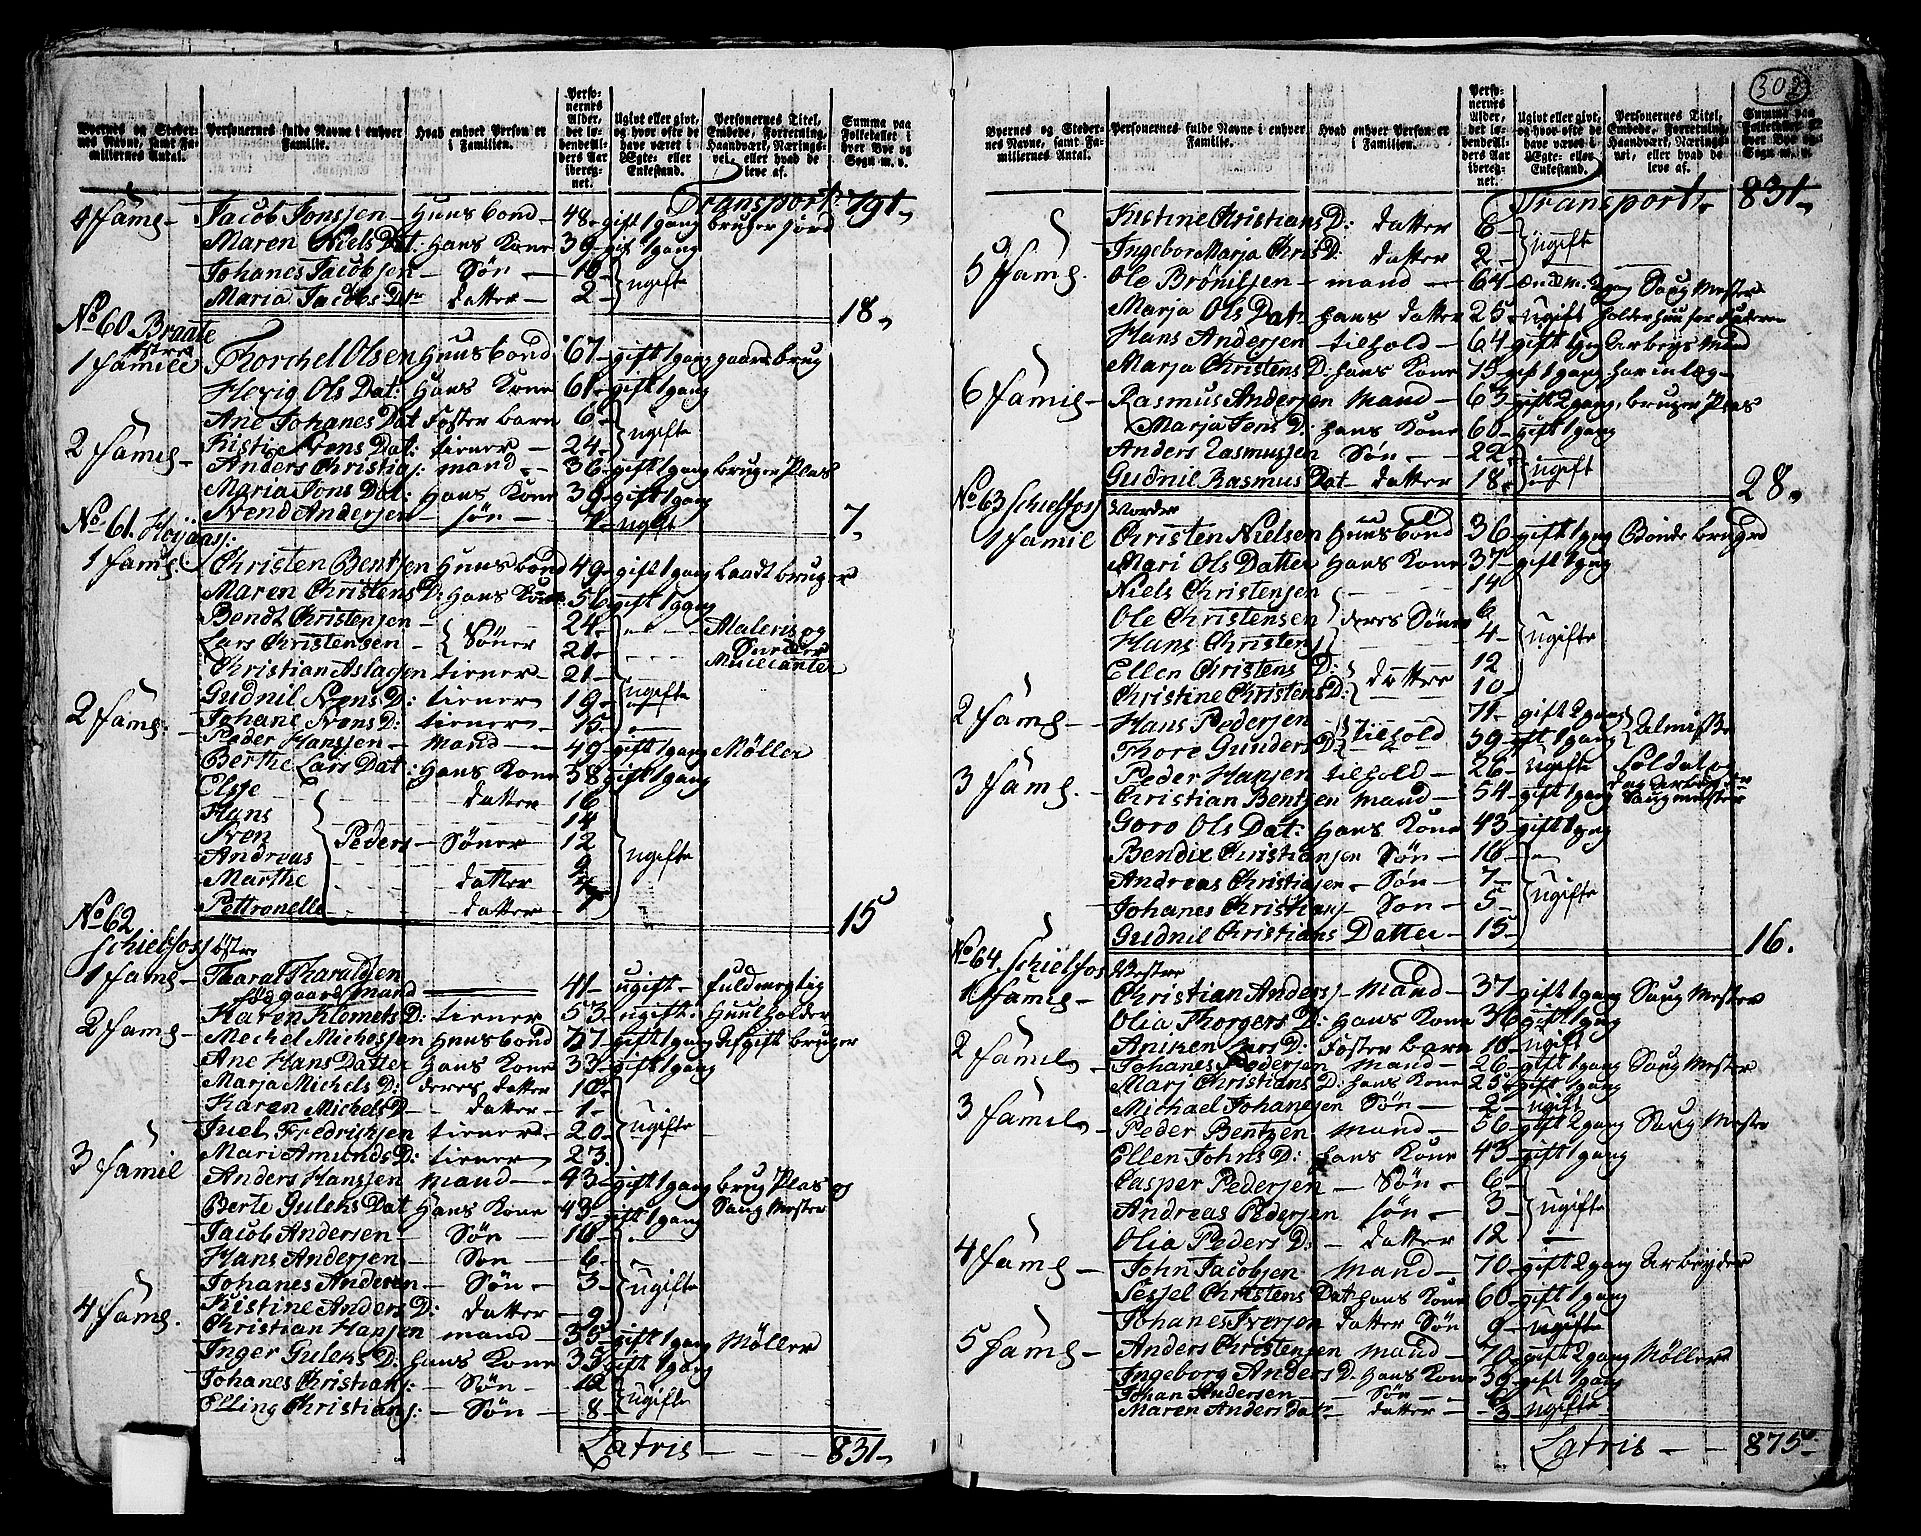 302
Byernes og Stedernes Navne, samt Familiernes Antal.
Personernes fulde Navne i enhver Familie.
Hvad enhver Person er i Familien.
Personernes Alder, det løbende Alders Aar iberegnet.
Ugivt eller givt, og hvor ofte de have været i Ægte- eller Enkestand.
Personernes Titel, Embede, Forretning, Haandværk, Næringsvei, eller hvad de leve af.
Summa paa Folketallet i hver Bye og Sogn m. v.
Transport 791
4 Famil - Jacob Jonssen - Huusbond - 48 - gift 1 gang bruger jord
Maren Niels Dat: Hans Kone 39 - gift 1 gang
Johanes Jacobsen - Søn - 10 - ugifte
Maria Jacobs Datr datter - 2
18
No 60 Braate østre
1 Famile Thorchel Olsen Huusbond 67 - gift 1 gang gaardbrug
Hervig Ols Dat: Hans Kone 61 - gift 1 gang
Ane Johanes Dat Foster barn 6 - ugifte
Kisti Svens Dat: tiener - 24
2 Famil - Anders Christias: mand - 36 - gift 1 gang bruger Plas
Maria Jons Dat: Hans Kone 39 - gift 1 gang
Svend Andersen - søn - 4 - ugift
7
No 61. Hoijaas:
1 Famil: Christen Bentsen Huusbond 49 - gift 1 gang Laadt bruger
Maren Christens D: Hans Kone 56 gift 1 gang
Bendt Christensen - Søner 24 - Maleris og
Lars Christensen - 21
Christian Aslagsen tiener 21 - Musicanter
Gudnil Svens D: tiener 19 - ugifte
Johane Svens D: tiener 15
2 Famil - Peder Hanssen - Mand - 49 - gift 1 gang Møller
Berthe Lars Dat: Hans Kone 38 gift 1 gang
Elsje - datter 16
Hans 14
Sven Peders - Søner 12 ugifte
Andreas 9
Marthe - datter 4
Pettronelle - datter 1
15
No 62 Schielfoss østre
1 Famil - Tharal Tharaldsen 41 - ugift - fuldmegtig
for gaards mand
Karen Klomets D: tiener 53 - ugift - Huusholder
2 Famil - Mechel Michelsen Huusbond 77 - gift 1 gang Afgift bruger
Ane Hans Datter Hans Kone 33 - gift 1 gang
Marja Michels D: deres datter 10
Karen Michels D - datter - 1 ugifte
Juel Fredrichsen tiener - 20
Mari Amunds D: tiener 23
3 Famil Anders Hanssen Mand - 43 - gift 1 gang brug Plas og
Berte Guleks Dat Hans Kone 43 - gift 1 gang Saug Mester
Jacob Andersen - Søn - 10
Hans Andersen - Søn - 6
Johanes Andersen - Søn - 3 ugifte
Kistine Anders D: datter - 9
4 Famil. Christian Hansen mand - 35 gift 1 gang Møller
Inger Guleks D: hans Kone 35 gift 1 gang
Johanes Christians: - Søn - 12 ugifte
Elling Christians: - Søn - 8
Latris - 831
Byernes og Stedernes Navne, samt Familiernes Antal.
Personernes fulde Navne i enhver Familie.
Hvad enhver Person er i Familien.
Personernes Alder, det løbende Alders Aar iberegnet.
Ugivt eller givt, og hvor ofte de have været i Ægte- eller Enkestand.
Personernes Titel, Embede, Forretning, Haandværk, Næringsvei, eller hvad de leve af.
Summa paa Folketallet i hver Bye og Sogn m. v.
Transport - 831
Kistine Christians D: datter 6 ugift
Ingebor Marja Chris D: datter 2
5 Famil. Ole Brønilsen - mand - 64 - Enkem: 2 gang Saug Mester
Marja Ols Datr hans datter 25 - ugift holder huus for Faderen
Hans Andersen tilhold - 64 gift 1 gang Arbeyds Mand
Marja Christens D: hans Kone 75 gift 1 gang har inlæg
6 Famil - Rasmus Andersen Mand - 63 gift 2 gang, bruger Plas
Marja Jens D: hans Kone 60 - gift 1 gang
Anders Rasmussen Søn - 22 ugift
Gudnil Rasmus Dat - datter 18
28
No 63 Schielfoss Nordre
1 Famil Christen Nielsen Huusbond 36 gift 1 gang Bonde bruger
Mari Ols Datter Hans Kone 37 - gift 1 gang
Niels Christensen 14
Ole Christensen deres Søner 6
Hans Christens: 4 ugifte
Ellen Christens D: datter 12
Christine Christens D: 10
2 Famil - Hans Pedersen tilhold 71 - gift 2 gang Almisse
Thore Gunders D: 59 gift 1 gang
Peder Hansen tilhold - 26 - ugifte Soldat og
3 Famil - Christian Bentzen Mand - 54 - gift 1 gang Saugmester
Goro Ols Dat: Hans Kone 43 - gift 1 gang
Bendix Christiansen Søn - 16
Andreas Christiansen - Søn - 7 - ugifte
Johanes Christians: - Søn - 5
Gudnil Christians Datter - 15
16.
No 64 Schielfoss Vestre
1 Famil - Christian Anders: - Mand - 37 - gift 1 gang Saug Mester
Olia Thorgers D: Hans Kone 36 gift 1 gang
Aniken Lars D: Foster barn 10 - ugift
2 Famil Johanes Pedersen Mand - 26 - gift 1 gang Saug Mester
Marj Christians D: hans Kone 25 - gift 1 gang
Michael Johanesen Søn - 2 - ugift
3 Famil - Peder Bentzen Mand - 56 gift 2 gang Saug Mester
Ellen Johns D: hans Kone 43 - gift 1 gang
Casper Pedersen - Søn - 6
Andreas Pedersen søn - 3 - ugifte
Olia Peders D: - datter 12
4 Famil - John Jacobsen Mand - 70 - gift 2 gang Arbeyder
Sessel Christens Dat hans Kone 60 - gift 1 gang
Johanes Iversen datter Søn 9 - ugifte
5 Famil - Anders Christensen mand - 70 - gift 2 gang Møller
Ingeborg Anders D: Hans Kone 36 gift 1 gang
Johan Andersen - Søn -
Maren Anders datr - datter - 3 ugifte
Latris - - 875